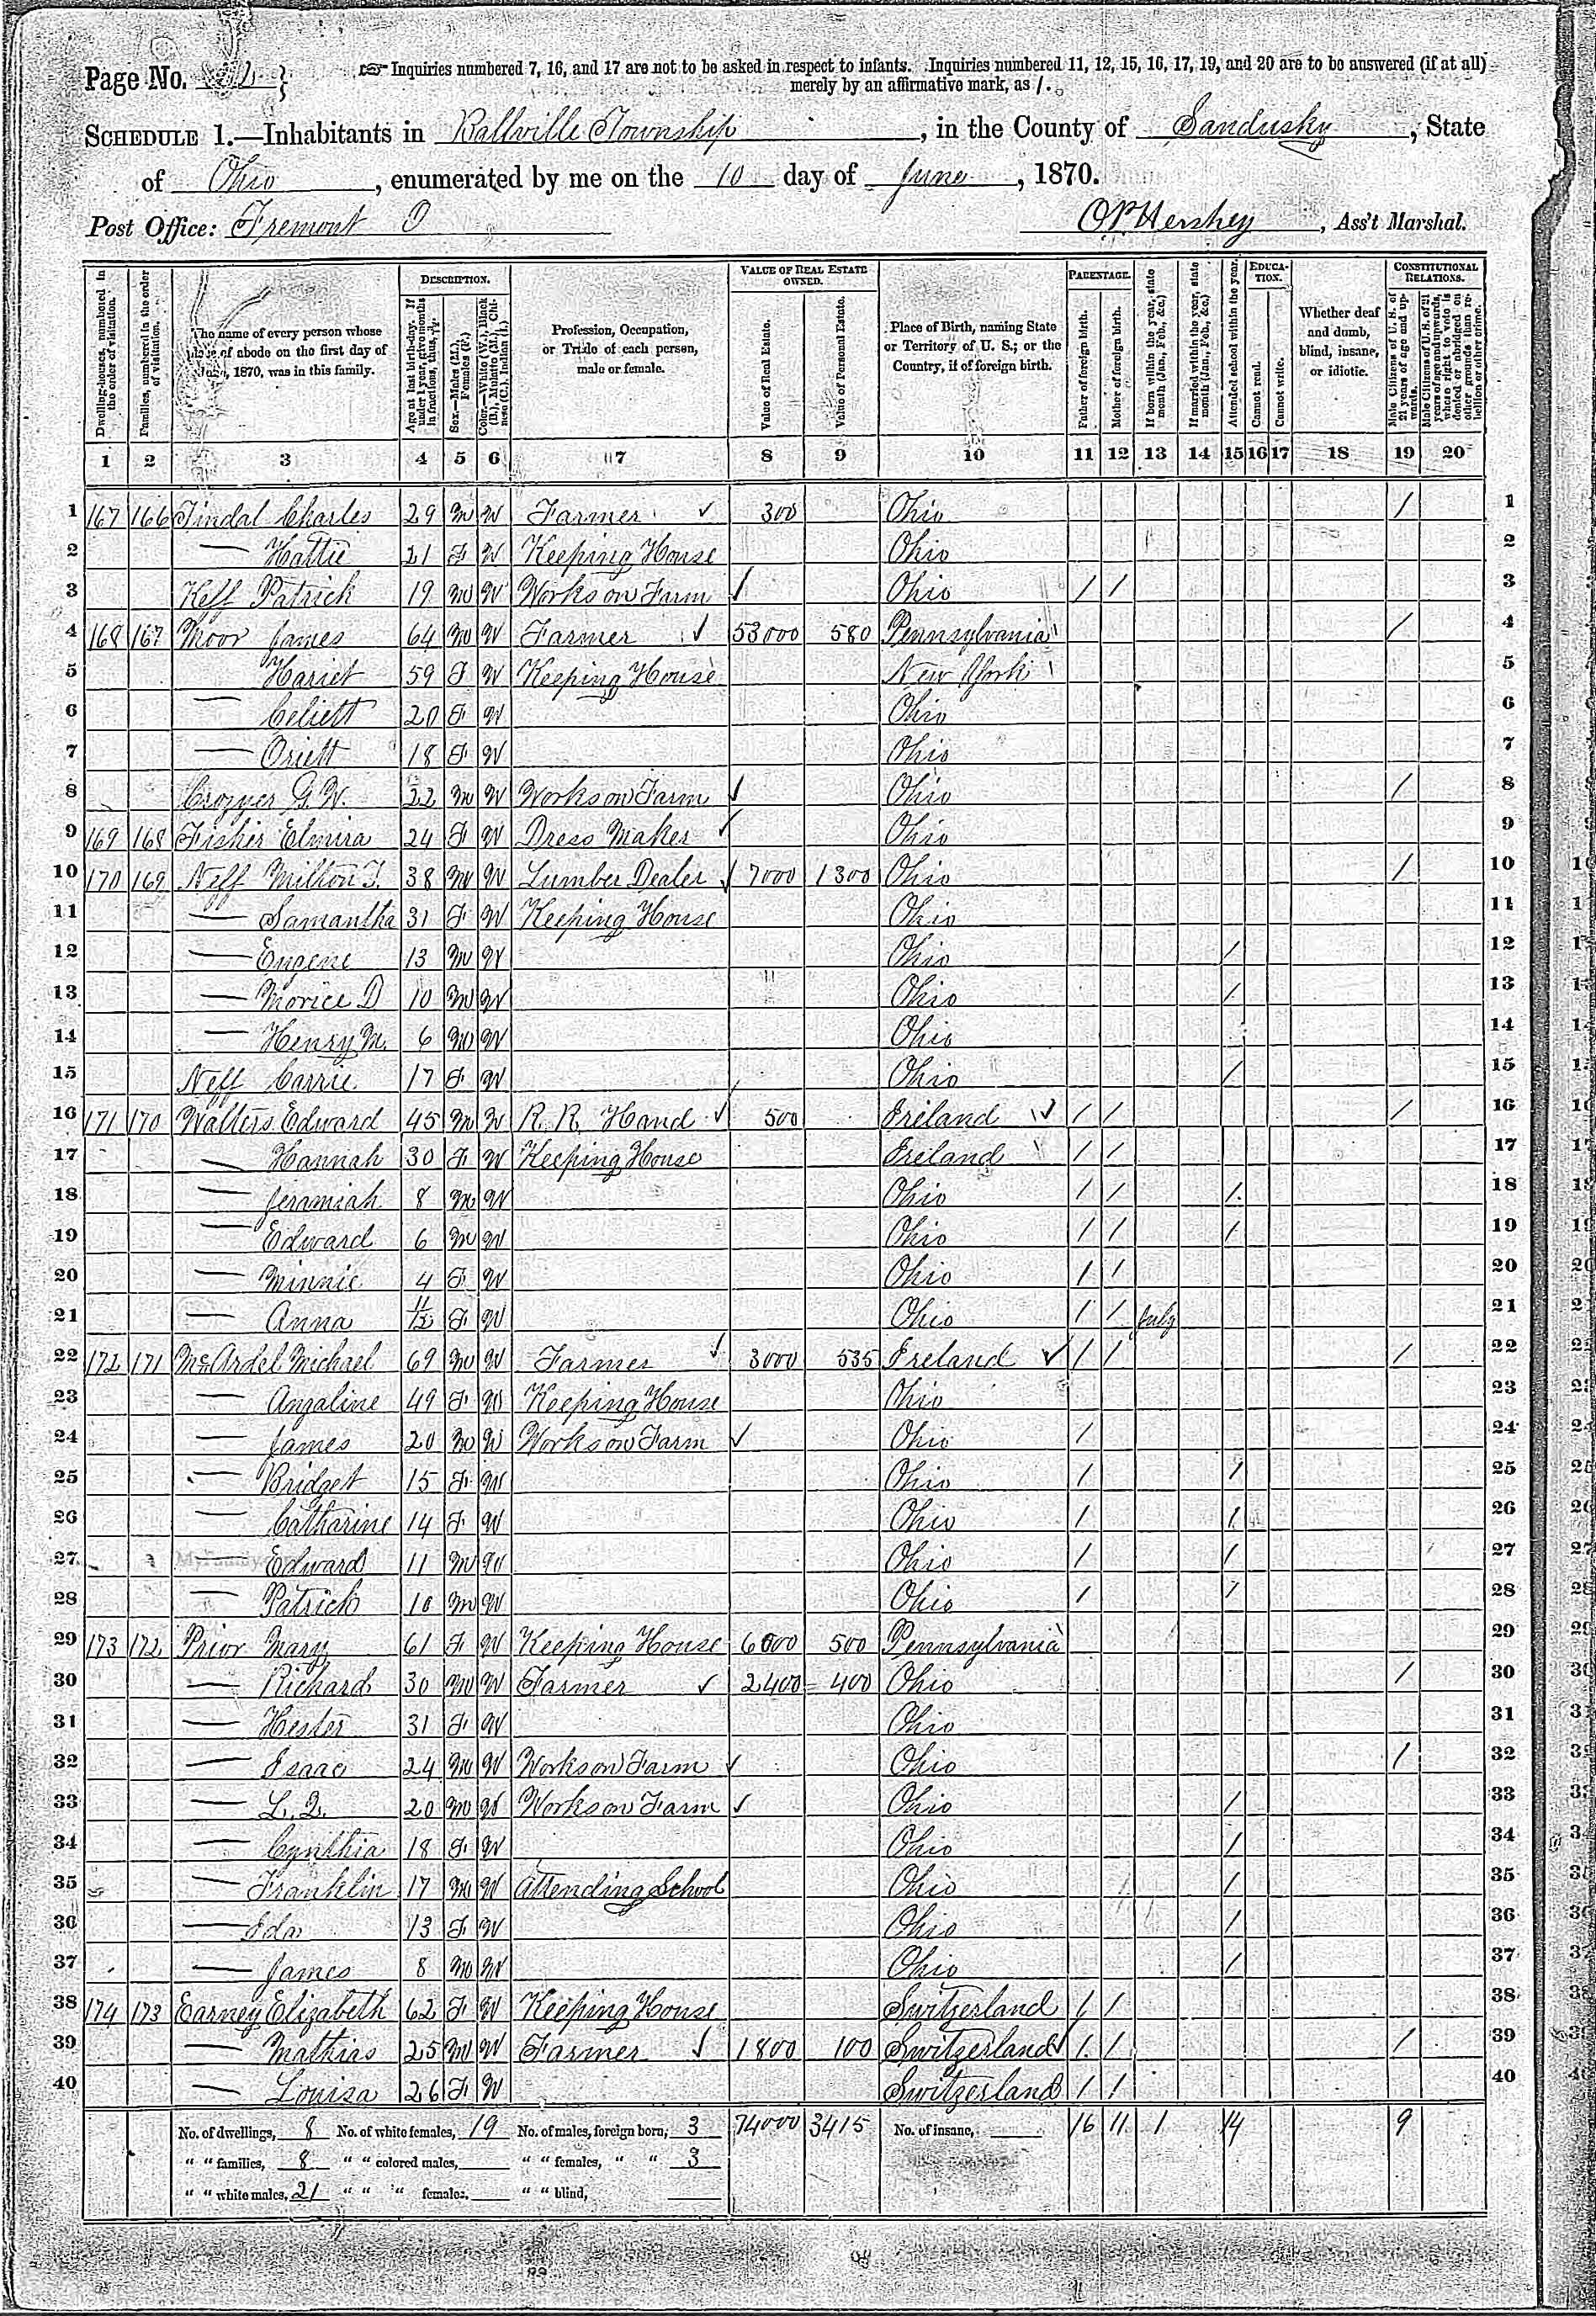 Page No.
☞ Inquiries numbered 7, 16, and 17 are not to be asked in respect to infants. Inquiries numbered 11, 12, 15, 16, 17, 19, and 20 are to be answered (if at all)
merely by an affirmative mark, as /.
SCHEDULE 1.—Inhabitants in Ballville Township, in the County of Sandusky, State
of Ohio, enumerated by me on the 10 day of June, 1870.
Post Office: Fremont O O.P. Hershey, Ass't Marshal.
Dwelling-houses, numbered in the order of visitation.
Families, numbered in the order of visitation.
The name of every person whose place of abode on the first day of June, 1870, was in this family.
DESCRIPTION.
Age at last birth-day. If under 1 year, give months in fractions, thus,
Sex.—Males (M.), Females (F.)
Color.—White (W.), Black (B.), Mulatto (M.), Chinese (C.), Indian (I.)
Profession, Occupation, or Trade of each person, male or female.
VALUE OF REAL ESTATE OWNED.
Value of Real Estate.
Value of Personal Estate.
Place of Birth, naming State or Territory of U. S.; or the Country, if of foreign birth.
PARENTAGE.
Father of foreign birth.
Mother of foreign birth.
If born within the year, state month (Jan., Feb., &c.)
If married within the year, state month (Jan., Feb., &c.)
Attended school within the year.
EDUCATION.
Cannot read.
Cannot write.
Whether deaf and dumb, blind, insane, or idiotic.
CONSTITUTIONAL RELATIONS.
Male Citizens of U. S. of 21 years of age and upwards.
Male Citizens of U. S. of 21 years of age and upwards, whose right to vote is denied or abridged on other grounds than rebellion or other crime.
1 2 3 4 5 6 7 8 9 10 11 12 13 14 15 16 17 18 19 20
1 167 166 Tindal Charles 29 M W Farmer ✓ 300 Ohio / 1
2 — Hattie 21 F W Keeping House Ohio 2
3 Keff Patrick 19 M W Works on Farm ✓ Ohio / / 3
4 168 167 Moor James 64 M W Farmer ✓ 53000 580 Pennsylvania / 4
5 Hariet 59 F W Keeping House New York 5
6 — Celiett 20 F W Ohio 6
7 — Oriett 18 F W Ohio 7
8 Crozyer G.W. 22 M W Works on Farm ✓ Ohio / 8
9 169 168 Fisher Elmira 24 F W Dress Maker ✓ Ohio 9
10 170 169 Neff Milton J. 38 M W Lumber Dealer ✓ 7000 1300 Ohio / 10
11 — Samantha 31 F W Keeping House Ohio 11
12 — Eugene 13 M W Ohio / 12
13 — Morice D 10 M W Ohio / 13
14 — Henry M. 6 M W Ohio 14
15 Neff Carrie 17 F W Ohio / 15
16 171 170 Walters Edward 45 M W R. R. Hand ✓ 500 Ireland ✓ / / / 16
17 — Hannah 30 F W Keeping House Ireland / / 17
18 — Jeramiah 8 M W Ohio / / / 18
19 — Edward 6 M W Ohio / / / 19
20 — Minnie 4 F W Ohio / / 20
21 — Anna 11/12 F W Ohio / / July 21
22 172 171 McArdel Michael 69 M W Farmer ✓ 3000 535 Ireland ✓ / / / 22
23 — Angaline 49 F W Keeping House Ohio 23
24 — James 20 M W Works on Farm ✓ Ohio / 24
25 — Bridget 15 F W Ohio / / 25
26 — Catharine 14 F W Ohio / / 26
27 — Edward 11 M W Ohio / / 27
28 — Patrick 10 M W Ohio / / 28
29 173 172 Prior Mary 61 F W Keeping House 6000 500 Pennsylvania 29
30 — Richard 30 M W Farmer ✓ 2400 400 Ohio / 30
31 — Hester 31 F W Ohio 31
32 — Isaac 24 M W Works on Farm ✓ Ohio / 32
33 — L. Q. 20 M W Works on Farm ✓ Ohio / 33
34 — Cynthia 18 F W Ohio / 34
35 — Franklin 17 M W Attending School Ohio / 35
36 — Ida 13 F W Ohio / 36
37 — James 8 M W Ohio / 37
38 174 173 Earney Elizabeth 62 F W Keeping House Switzerland / / 38
39 — Mathias 25 M W Farmer ✓ 1800 100 Switzerland / / / 39
40 — Louisa 26 F W Switzerland / / 40
No. of dwellings, 8 No. of white females, 19 No. of males, foreign born, 3 74000 3415 No. of insane, 16 11 1 14 9
" " families, 8 " " colored males, " " females, " " 3
" " white males, 21 " " " females, " " blind,